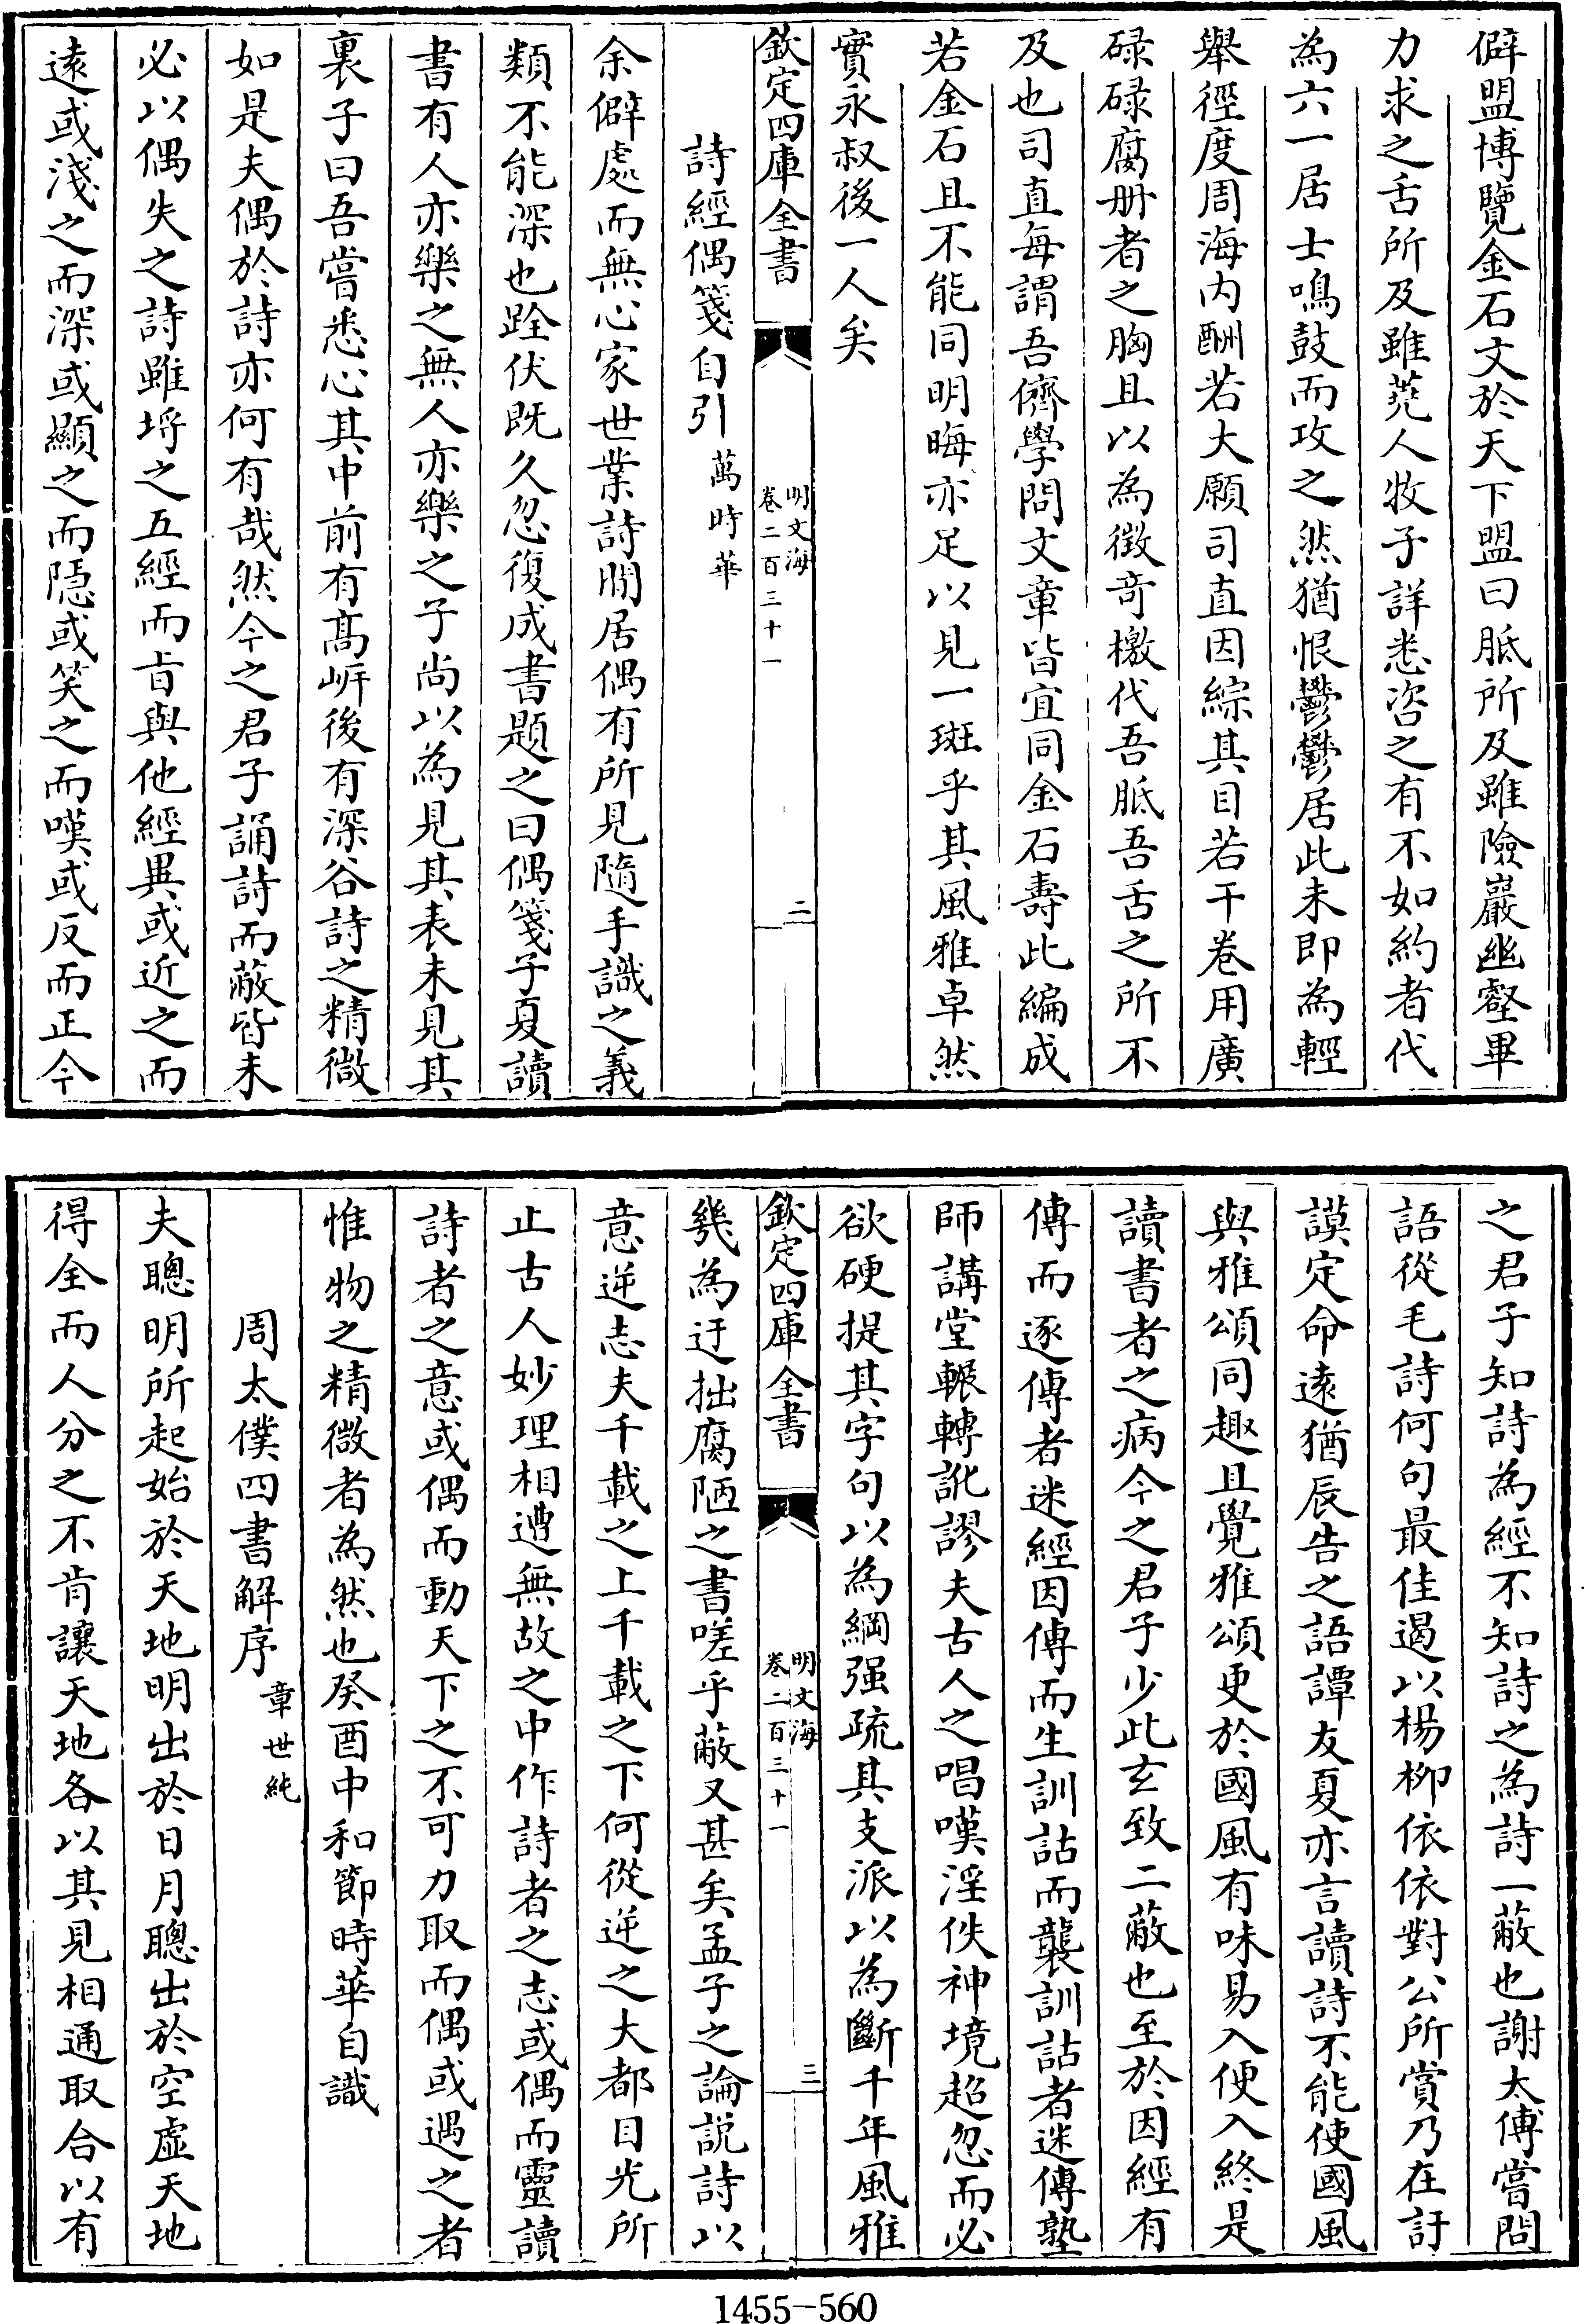 僻盟博覽金石文於天下盟曰胝所及雖險巖幽壑畢
力求之舌所及雖蕘人牧子詳悉咨之有不如約者代
為六一居士鳴鼓而攻之然猶恨鬱鬱居此未即為輕
舉徑度周海内酬若大願司直因綜其目若干卷用廣
碌碌腐册者之胸且以為徴竒檄代吾胝吾舌之所不
及也司直每謂吾儕學問文章皆宜同金石壽此編成
若金石且不能同明晦亦足以見一斑乎其風雅卓然
實永叔後一人矣
欽定四庫全書
明文海
卷二百三十一
二
詩經偶箋自引 萬時華
余僻處而無心家世業詩閒居偶有所見隨手識之義
類不能深也跧伏既久忽復成書題之曰偶箋子夏讀
書有人亦樂之無人亦樂之子尚以為見其表未見其
裏子曰吾嘗悉心其中前有髙岍後有深谷詩之精微
如是夫偶於詩亦何有哉然今之君子誦詩而蔽皆未
必以偶失之詩雖埒之五經而㫖與他經異或近之而
逺或淺之而深或顯之而隠或笑之而嘆或反而正今
之君子知詩為經不知詩之為詩一蔽也謝太傅嘗問
語從毛詩何句最佳遏以楊柳依依對公所賞乃在訏
謨定命逺猶辰告之語譚友夏亦言讀詩不能使國風
與雅頌同趣且覺雅頌更於國風有味易入便入終是
讀書者之病今之君子少此玄致二蔽也至於因經有
傳而逐傳者迷經因傳而生訓詁而襲訓詁者迷傳塾
師講堂輾轉訛謬夫古人之唱嘆淫佚神境超忽而必
欲硬提其字句以為綱强疏其支派以為斷千年風雅
欽定四庫全書
明文海
卷二百三十一
三
幾為迂拙腐陋之書嗟乎蔽又甚矣孟子之論說詩以
意逆志夫千載之上千載之下何從逆之大都目光所
止古人妙理相遭無故之中作詩者之志或偶而靈讀
詩者之意或偶而動天下之不可力取而偶或遇之者
惟物之精微者為然也癸酉中和節時華自識
周太僕四書解序 章世純
夫聰明所起始於天地明出於日月聰出於空虚天地
得全而人分之不肯讓天地各以其見相通取合以有
1455-560